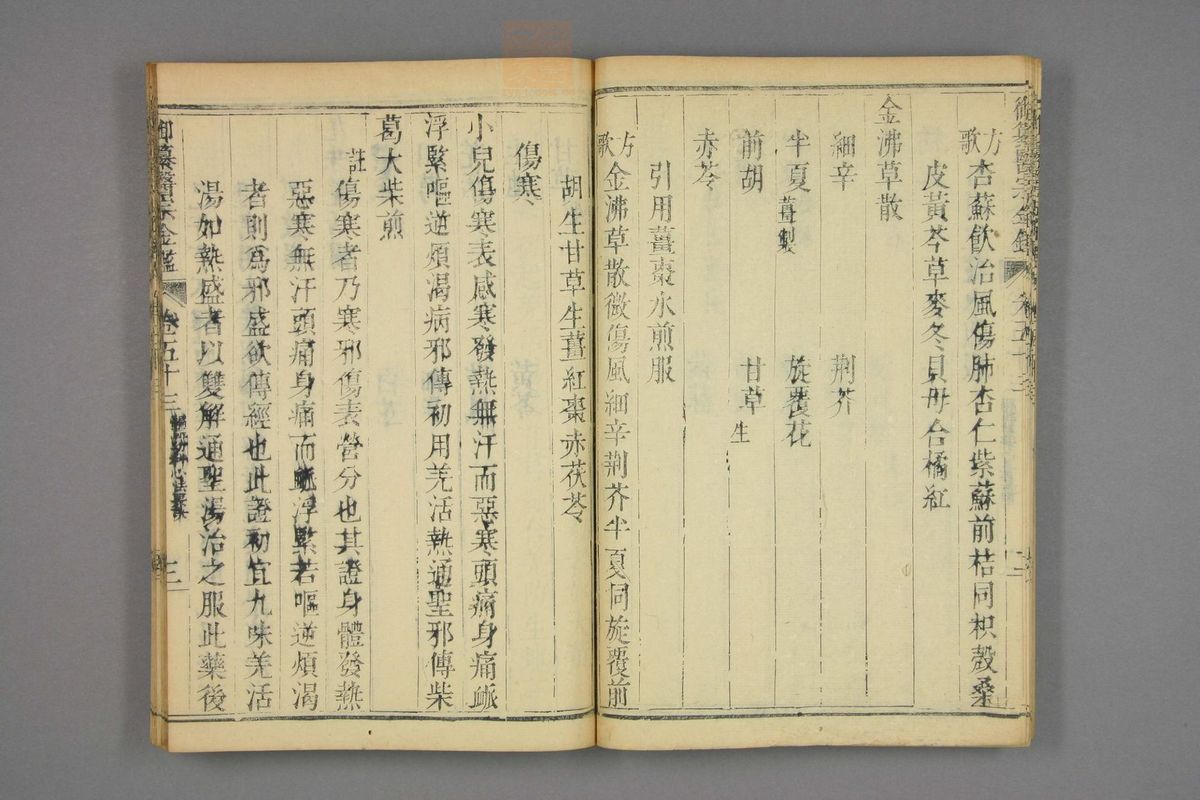 方歌 杏蘇飲治風傷肺杏仁紫蘇前桔同枳殼桑
皮黃芩草麥冬貝母合橘紅
金沸草散
細辛 荆芥
半夏薑製 旋覆花
前胡 甘草生
赤苓
引用薑棗水煎服
方歌 金沸草散微傷風細辛荆芥半夏同旋覆前
胡生甘草生薑紅棗赤茯苓
傷寒
小兒傷寒表感寒發熱無汗而惡寒頭痛身痛脈
浮緊嘔逆煩渴病邪傳初用羌活熱通聖邪傳柴
葛大柴煎
註 傷寒者乃寒邪傷表營分也其證身體發熱
惡寒無汗頭痛身痛而脈浮緊若嘔逆煩渴
者則爲邪盛欲傳經也此證初宜九味羌活
湯如熱盛者以雙解通聖湯治之服此藥後
御纂醫宗金鑑 卷五十三 三